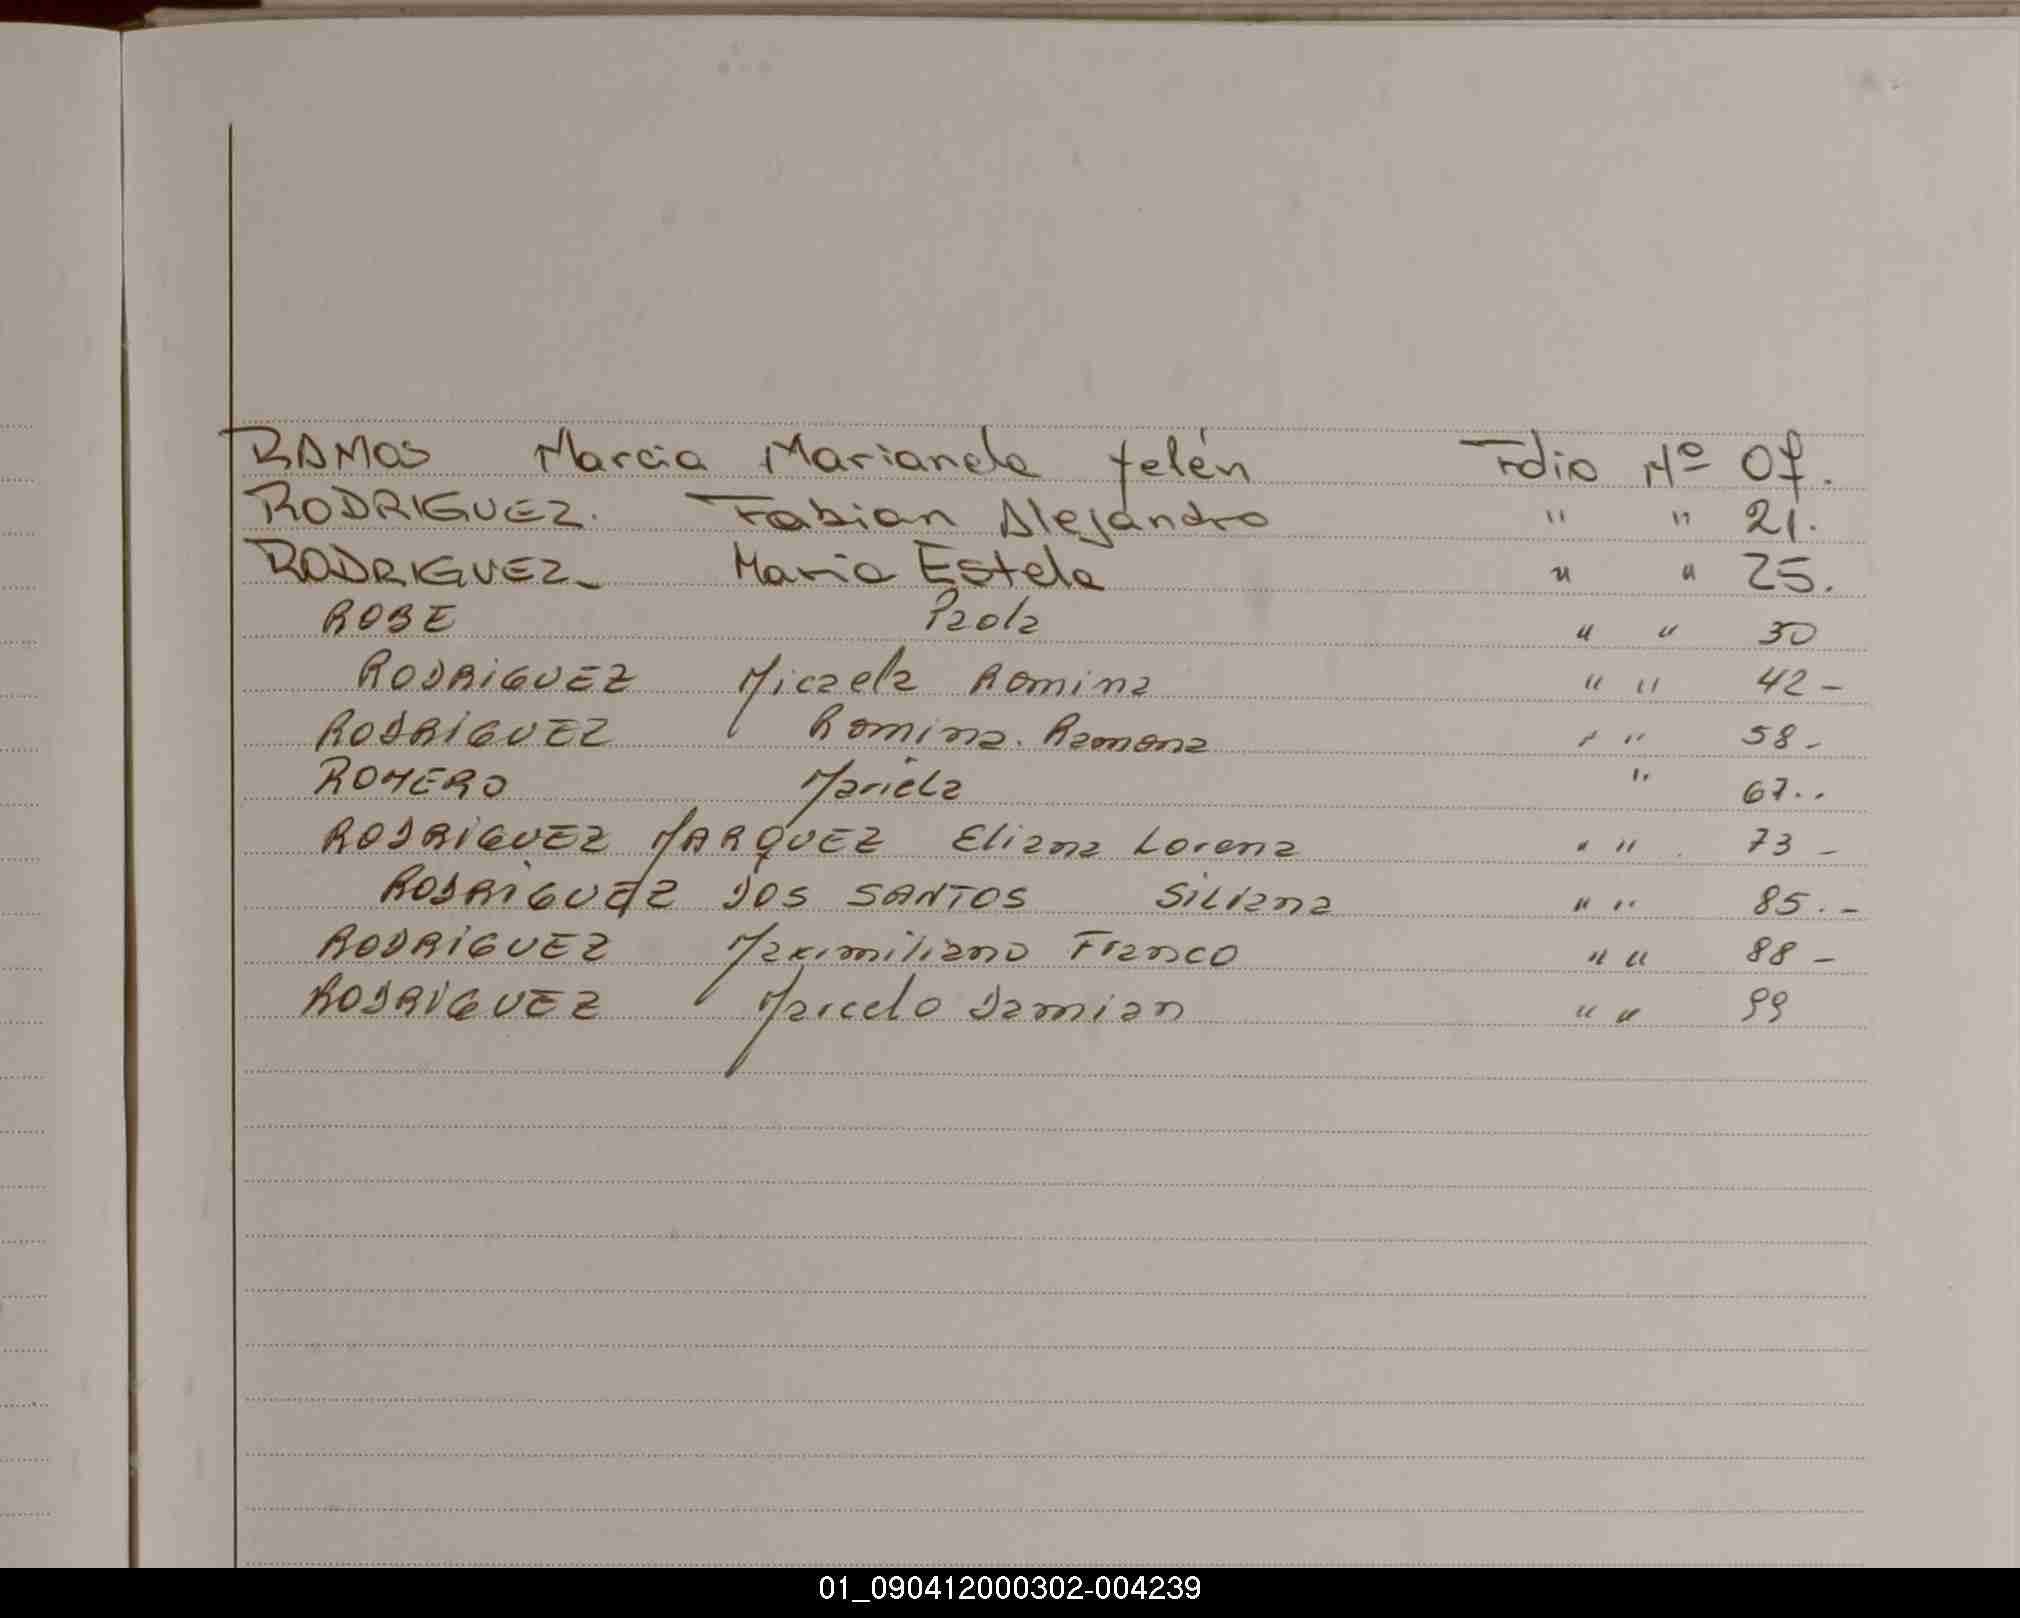 RAMOS Marcia Marianela Yelén Folio Nº 07.
RODRIGUEZ. Fabian Alejandro " " 21.
RODRIGUEZ_ Maria Estela " " 25.
ROBE Paola " " 30
RODRiGUEZ Micaela Romina " " 42 -
RODRiGUEZ Romina. Ramona " " 58 -
ROMERO Mariela " 67..
RODRiGUEZ MARQUEZ Eliana Lorena " " 73 -
RODRiGUEZ DOS SANTOS SiLVana " " 85. -
RODRiGUEZ Maximiliano Franco " " 88 -
RODRiGUEZ Marcelo Damian " " 99
01_090412000302-004239